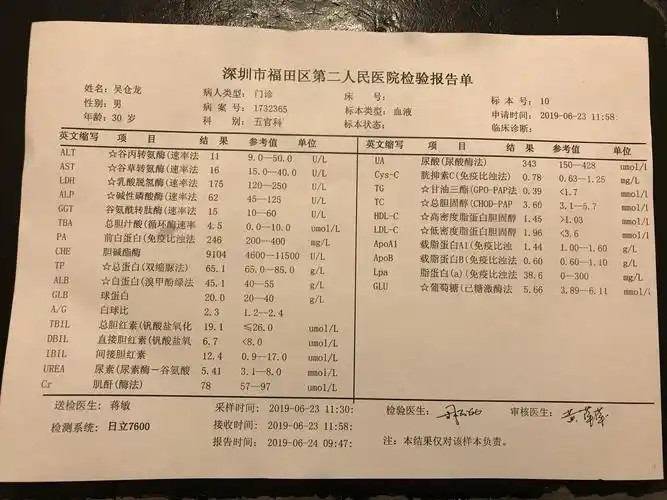 深圳市福田区第二人民医院检验报告单
姓名: 吴仓龙 病人类型: 门诊 床 号: 标本号: 10
性别: 男 病案号: 1732365 标本类型: 血液 申请时间: 2019-06-23 11:58:
年龄: 30 岁 科 别: 五官科 标本状态: 临床诊断:
英文缩写 项 目 结 果 参考值 单位
ALT ☆谷丙转氨酶(速率法 11 9.0—50.0 U/L
AST ☆谷草转氨酶(速率法 16 15.0—40.0 U/L
LDH ☆乳酸脱氢酶(速率法 175 120—250 U/L
ALP ☆碱性磷酸酶(速率法 62 45—125 U/L
GGT 谷氨酰转肽酶(速率法 15 10—60 U/L
TBA 总胆汁酸(循环酶速率 4.5 0.0—10.0 umol/L
PA 前白蛋白(免疫比浊法 246 200—400 mg/L
CHE 胆碱酯酶 9104 4600—11500 U/L
TP ☆总蛋白(双缩脲法) 65.1 65.0—85.0 g/L
ALB ☆白蛋白(溴甲酚绿法 45.1 40—55 g/L
GLB 球蛋白 20.0 20—40 g/L
A/G 白球比 2.3 1.2—2.4
TBIL 总胆红素(钒酸盐氧化 19.1 ≤26.0 umol/L
DBIL 直接胆红素(钒酸盐氧 6.7 <8.0 umol/L
IBIL 间接胆红素 12.4 0.9—17.0 umol/L
UREA 尿素(尿素酶－谷氨酸 5.41 3.1—8.0 mmol/L
Cr 肌酐(酶法) 78 57—97 umol/L
英文缩写 项 目 结 果 参考值 单位
UA 尿酸(尿酸酶法) 343 150—428 umol/l
Cys-C 胱抑素C(免疫比浊法) 0.78 0.63—1.25 mg/L
TG ☆甘油三酯(GPO-PAP法 0.39 <1.7 mmol/
TC ☆总胆固醇(CHOD-PAP 3.60 3.1—5.7 mmol/
HDL-C ☆高密度脂蛋白胆固醇 1.45 >1.03 mmol/
LDL-C ☆低密度脂蛋白胆固醇 1.96 <3.6 mmol/
ApoA1 载脂蛋白A1(免疫比浊 1.44 1.00—1.60 g/L
ApoB 载脂蛋白B(免疫比浊法 0.60 0.60—1.10 g/L
Lpa 脂蛋白(a)(免疫比浊法 38.6 0—300 mg/L
GLU ☆葡萄糖(己糖激酶法 5.66 3.89—6.11 mmol/
送检医生: 蒋敏 采样时间: 2019-06-23 11:30: 检验医生: 审核医生:
检测系统: 日立7600 接收时间: 2019-06-23 11:58:
报告时间: 2019-06-24 09:47: 注: 本结果仅对该样本负责。